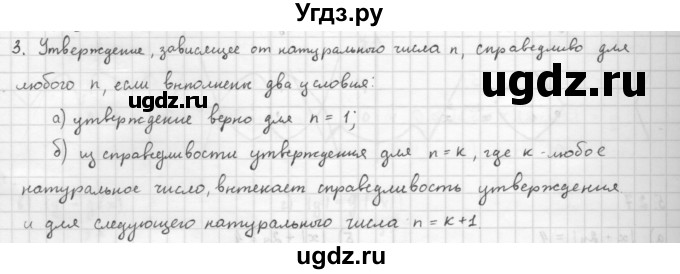 Угдз.ру
3. Утверждение, зависящее от натурального числа n, справедливо для
любого n, если выполнены два условия:
ugdz.ru ugdz.ru
а) утверждение верно для n = 1;
б) из справедливости утверждения для n = k, где k - любое
натуральное число, вытекает справедливость утверждения
и для следующего натурального числа n = k+1
ugdz.ru ugdz.ru